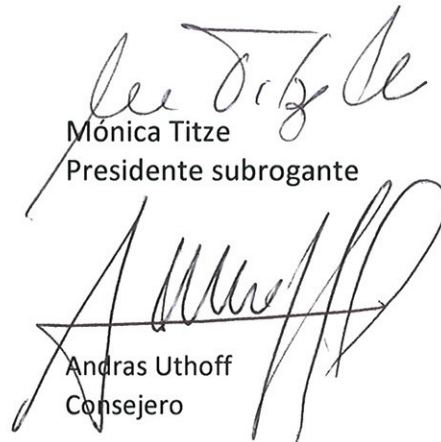 Mónica Titze
Presidente subrogante
Andras Uthoff
Consejero